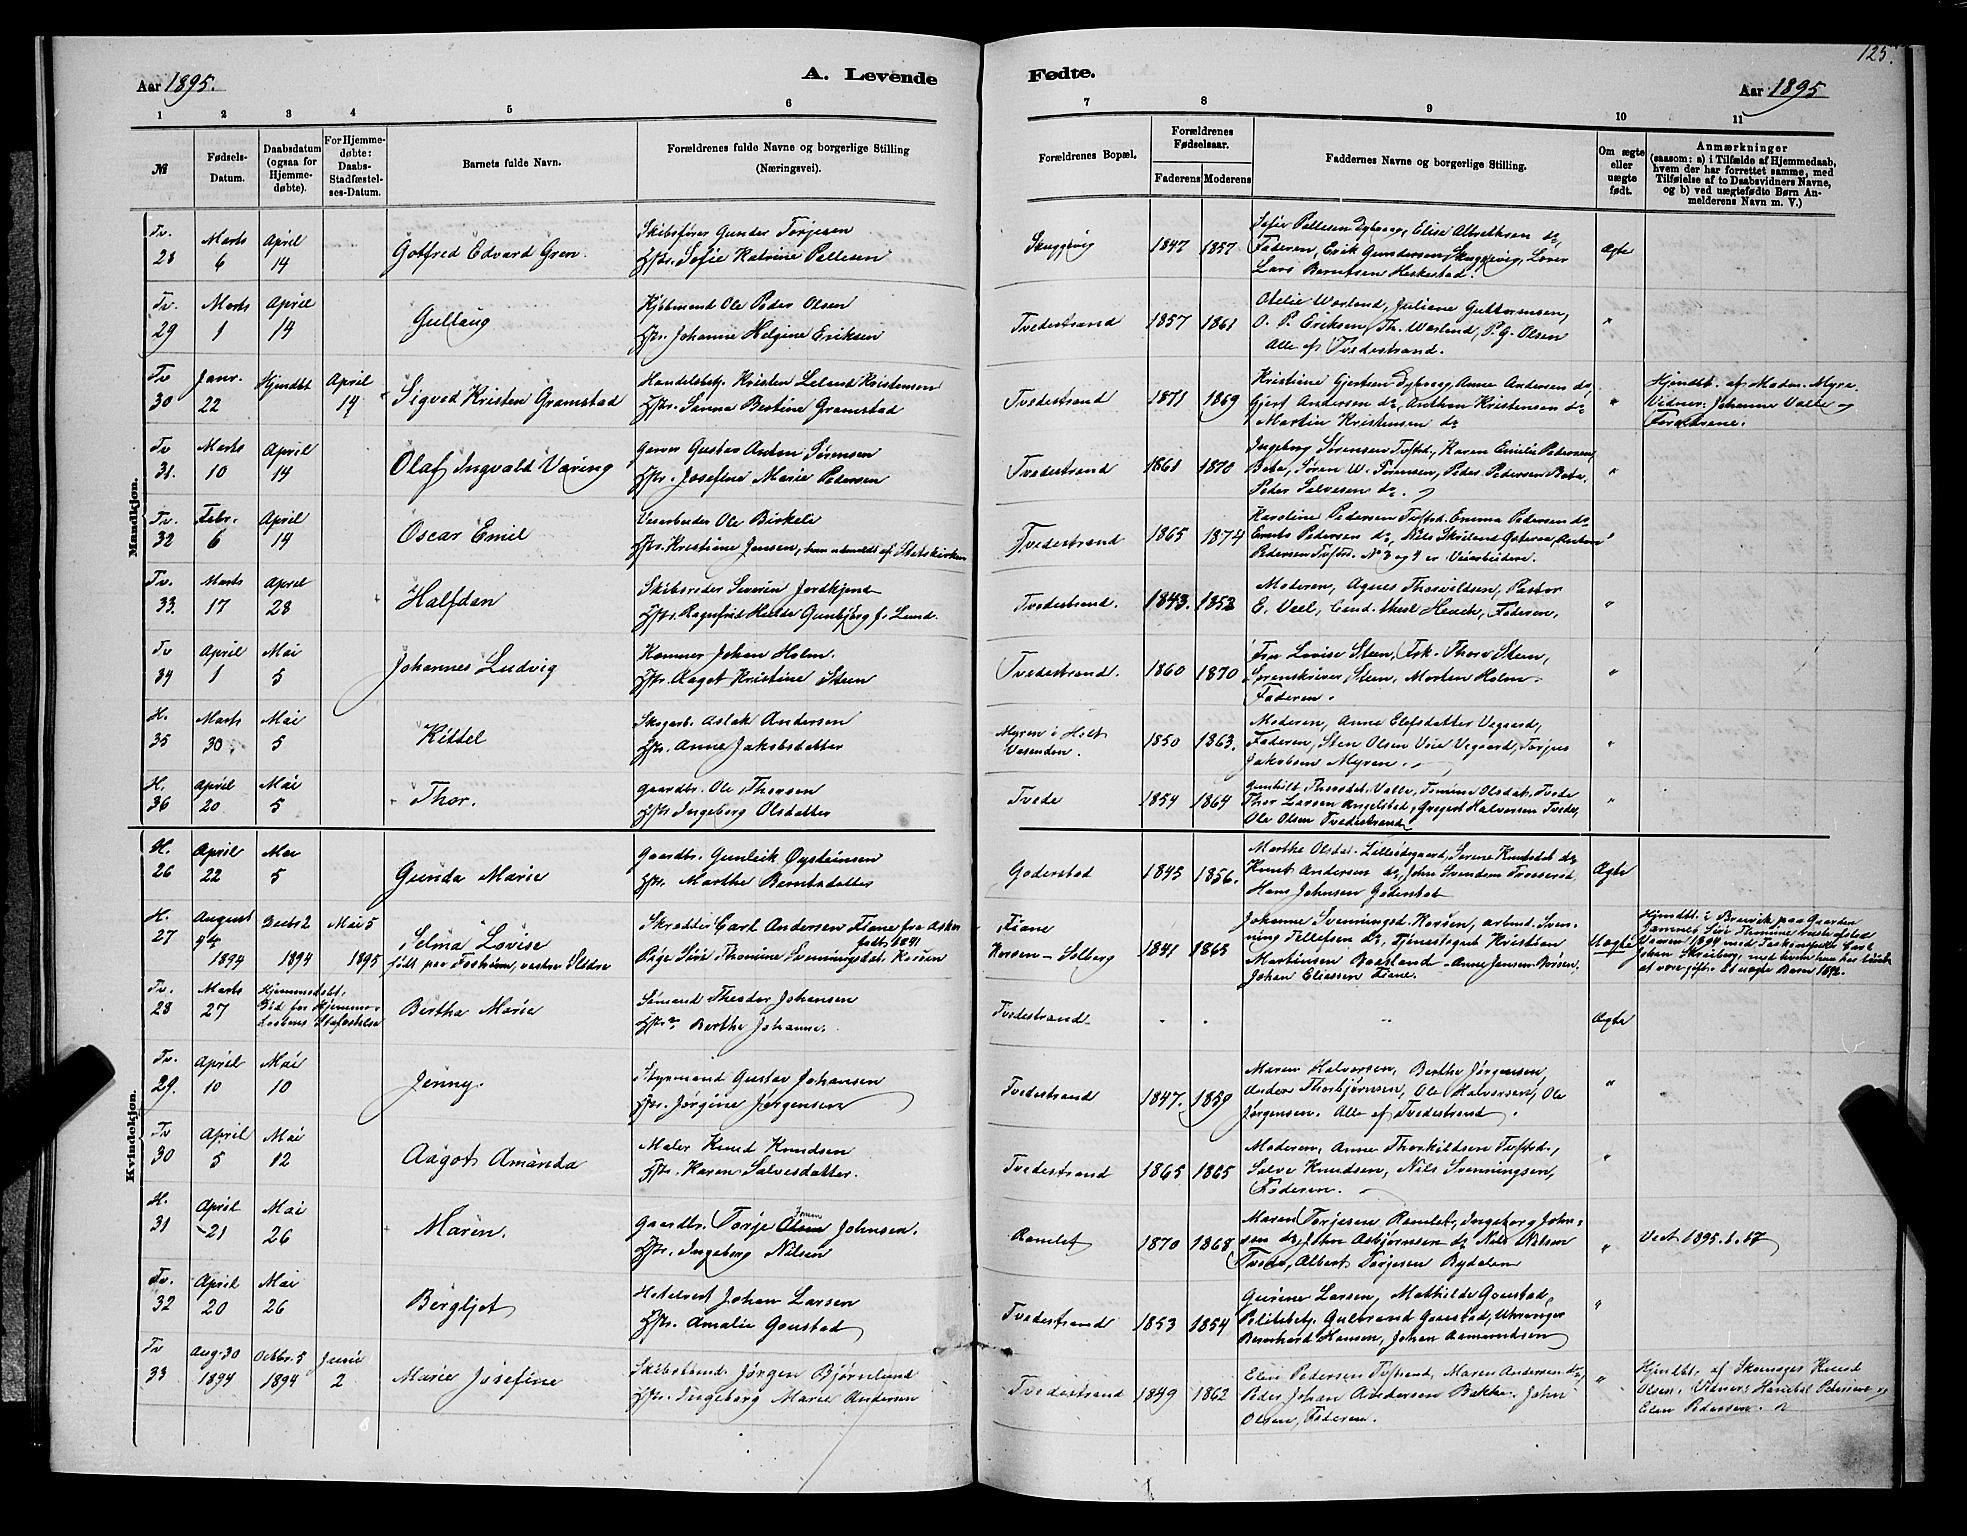 125.
Aar 1895.
A. Levende
Fødte.
Aar 1895
1 2 3 4 5 6 7 8 9 10 11
№
Fødsels-Datum.
Daabsdatum (ogsaa for Hjemmedøbte).
For Hjemmedøbte: Daabs Stadfæstelses-Datum.
Barnets fulde Navn.
Forældrenes fulde Navne og borgerlige Stilling (Næringsvei).
Forældrenes Bopæl.
Forældrenes Fødselsaar.
Faderens Moderens
Faddernes Navne og borgerlige Stilling.
Om ægte eller uægte født.
Anmærkninger
(saasom: a) i Tilfælde af Hjemmedaab, hvem der har forrettet samme, med Tilføielse af to Daabsvidners Navne, og b) ved uægtefødte Børn Anmelderens Navn m. V.)
Mandkjøn.
Tv. 28 Marts 6 April 14 Gotfred Edvard Gren.
Skibsfører Gunder Torjesen
Hstr. Sofie Katrine Pallesen
1847 1857
Sofie Pallesen Dybvaag, Elise Albretksen do
Faderen, Erik Gundersen
Lars Berntsen
Ægte
Tv. 29 Marts 1 April 14 Gullaug
Kjøbmand Ole Peder Olsen
Hstr. Johanne Helgine Eriksen
Tvedestrand 1857 1861
Otelie Warlund, Juliane Guttormsen,
O. P. Eriksen, Th. Warlund, P. G. Olsen
Alle af Tvedestrand.
Tv 30 Janr. 22 Hjmdbt April 14 Sigved Kristen Gramstad
Handelsbetj. Kristen Leland Kristensen
Hstr. Sanna Bertine Gramstad
Tvedestrand 1871 1869
Kristine Gjertsen Dybvaag, Anne Andersen do
Gjert Andersen do, Anthon Kristensen do
Martin Kristensen do
Hjmdbt. af Maden. Myre.
Vidner: Johanne Valle og
Forældrene.
Tv 31. Marts 10 April 14 Olaf Ingvald Waring
Garver Gustav Anton Sørensen
Hstr. Josefine Marie Petersen
Tvedestrand 1861 1870
Ingeborg Sørensen Tvestrd., Karen Emilie Pedersen,
Søren W. Sørensen, Peder Pedersen
Peder Salvesen do.
Tv. 32 Febr. 6 April 14 Oscar Emil
Veiarbeider Ole Birkeli
Hstr. Kristine Jensen, hun udmeldt af Statskirken
Tvedestrand 1865 1874
Karoline Pedersen Tvstrd. Emma Pedersen do
Emils Pedersen do, Nils
Pedersen Tvstrd. No 3 og 4 er Veiarbeidere.
Tv. 33. Marts 17 April 28 Halfdan
Skibsreder Severin Jordkjend
Hstr. Ragnfrid Hulda Gunbjørg f. Lund.
Tvedestrand. 1843. 1852
Moderen, Agnes Thorvildsen, Pastor
E. Vael, Cand. theol. Heuch, Faderen.
Tv 34 April 1 Mai 5 Johannes Ludvig
Kæmner Johan Holm.
Hstr. Aagot Kristine Steen
Tvedestrand. 1860 1870
Fru Lovise Steen, Frk. Thora Steen,
Sorenskriver Steen, Morten Holm.
Faderen.
H. 35 Marts 30. Mai 5 Kittel
Skogarb. Aslak Andersen
Hstr. Anne Jakobsdatter
Myren i Holt
Vesenden.
1850 1863.
Moderen, Anne Olefsdatter Vegaard,
Faderen, Sten Olsen Vegaard, Torjus
Jakobsen Myren.
H. 36 April 20 Mai 5 Thor.
Gaardbr. Ole Thorsen
Hstr. Ingeborg Olsdatter
Tvede 1854 1864
Gunhild Thorsdat. Valle, Tomine Olsdat. Tvede
Thor Larsen Angelstad, Gregert Halvorsen Tvede,
Ole Olsen Tvedestrand
Kvindekjøn.
H. 26 April 22 Mai 5 Gunda Marie
Gaardbr. Gunleik Øysteinsen
Hstr. Marthe Berntsdatter
Goderstad 1845 1856.
Marthe Olsdat. Lilleødegaard, Serene Knutsdat do
Knut Andersen do, John Svendsen
Hans Johnsen Goderstad
Ægte
H. 27 August 1894 Decbr 2 1894 Mai 5 1895
Selma Lovise
født paa Fosheim, vestre Slidre
Skrædder Carl Andersen Fiane fra Asker født, 1841
Pige Siri Thomine Svenningsdat. Korsen
Fiane
Korsen - Solberg
1841 1865
Johanne Svenningsd. Korsen, arbmd. Svenning Tellefsen do, Tjenestegut Kristian
Martinsen Baasland - Anne Jensen
Johan Eliassen Fiane.
Uægte
Tv. 28 Marts 27 Bertha Marie
Sømand Theodor Johansen
Hstr. Berthe Johanne.
Tvedestrand Ægte
Tv. 29. April 10 Mai 10 Jenny.
Styrmand Gustav Johansen
Hstr. Jørgine Jørgensen
Tvedestrand 1847. 1859
Maren Halvorsen, Berthe Jørgensen,
Anders Thorbjørnsen, Ole Halvorsen, Ole
Jørgensen. Alle af Tvedestrand.
Tv 30 April 5 Mai 12 Aagot Amanda
Maler Knud Knudsen
Hstr. Karen Salvesdatter.
Tvedestrand 1865 1865
Moderen, Anne Thorkildsen Tvstrd.,
Salve Knudsen, Nils Svenningsen,
Faderen.
H. 31 April 21 Mai 26 Maren.
Gaardbr. Torje Johnsen.
Hstr. Ingeborg Nilsen
Ramlet 1870 1868
Maren Torjesen Ramlet, Ingeborg Johnsen do, John Asbjørnsen do Nils Nilsen
Tvede, Albert Torjesen Bydalen
Tv. 32 April 20 Mai 26 Bergljot
Hotelvert Johan Larsen
Hstr. Amalie Goustad
Tvedestrand 1853 1854
Gurine Larsen, Mathilde Goustad,
Politibetj. Gulbrand Goustad, Uhrmager
Bernhard Hansen, Johan Aamundsen
Tv 33 Aug. 30 1894 Octbr. 5 1894 Juni 2 Marie Josefine
Skibstømd Jørgen Bjørnlund
Hstr. Ingeborg Marie Andersen
Tvedestrand 1849 1862
Elen Pedersen Tvstrand, Maren Andersen do,
Peder Johan Andersen Bakke. John
Olsen, Faderen.
Hjmdbt. af Skomager Knud
Olsen. Vidner: Hanibal Pedersen og
Elen Pedersen.